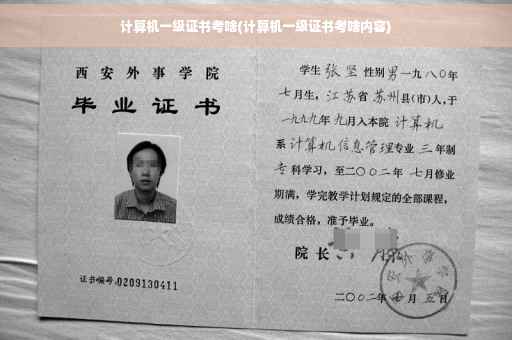 计算机一级证书考啥(计算机一级证书考啥内容)
西安外事学院
毕业证书
证书编号:0209130411
学生 张坚 性别男一九八〇年
七月生,江苏省苏州县(市)人,于
一九九九年九月入本院 计算机
系计算机信息管理专业三年制
专科学习,至二〇〇二年七月修业
期满,学完教学计划规定的全部课程,
成绩合格,准予毕业。
院长
二〇〇二年 月五日